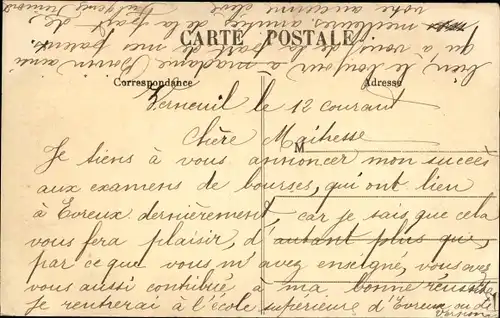 CARTE POSTALE
Correspondance
Adresse
M
Verneuil le 12 courant
Chère Maîtresse
Je tiens à vous annoncer mon succès
aux examens de bourses, qui ont lieu
à Evreux dernièrement, car je sais que cela
vous fera plaisir, d'autant plus que,
par ce que vous m'avez enseigné, vous avez
vous aussi contribué à ma bonne réussite
je rentrerai à l'école supérieure d'Evreux ou de
Vernon
bien le bonjour à madame ainsi
qu'à vous de la part de mes parents.
meilleures amitiés de la part de
votre ancienne élève